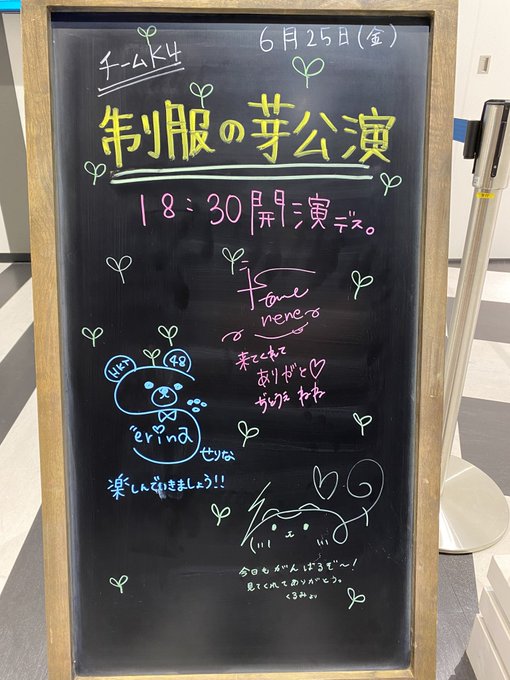 チームK4
6月25日(金)
制服の芽公演
18:30開演デス。
nene
来てくれて
ありがと♡
ぢどうえ ねね
HKT 48
erina
せりな
楽しんでいきましょう!!
今日もがんばるぞ〜!
見てくれてありがとう。
くるみより